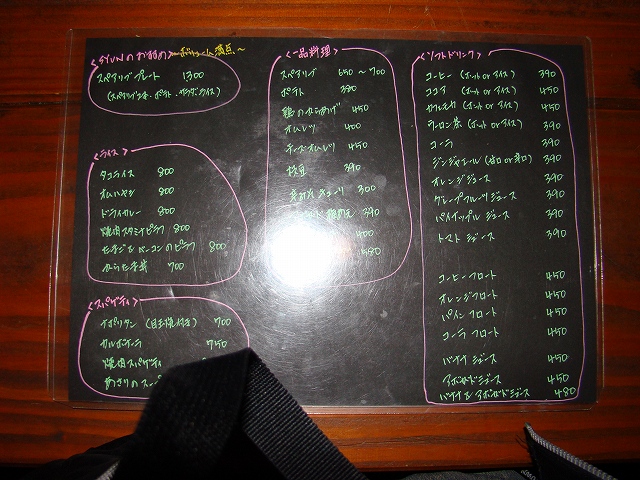 ＜SYUNのお勧め＞ ～ボリューム満点～
スペアリブプレート 1300
(スペアリブ2本・ポテト・サラダ・ライス)
＜ライス＞
タコライス 800
オムハヤシ 800
ドライカレー 800
焼肉スタミナピラフ 800
たまごとベーコンのピラフ 800
700
＜スパゲティ＞
ナポリタン (目玉焼付き) 700
カルボナーラ 750
焼肉スパゲティ
あさりのスープ
＜一品料理＞
スペアリブ 650～700
ポテト 380
鶏のからあげ 450
オムレツ 400
チーズオムレツ 450
枝豆 390
300
390
400
580
＜ソフトドリンク＞
コーヒー (ホット or アイス) 390
ココア (ホット or アイス) 450
カフェオレ (ホット or アイス) 450
ウーロン茶 (ホット or アイス) 390
コーラ 390
ジンジャエール (甘口 or 辛口) 390
オレンジジュース 390
グレープフルーツジュース 390
パイナップルジュース 390
トマトジュース 390
コーヒーフロート 450
オレンジフロート 450
パインフロート 450
コーラフロート 450
バナナジュース 450
アボガドジュース 450
バナナ&アボガドジュース 480